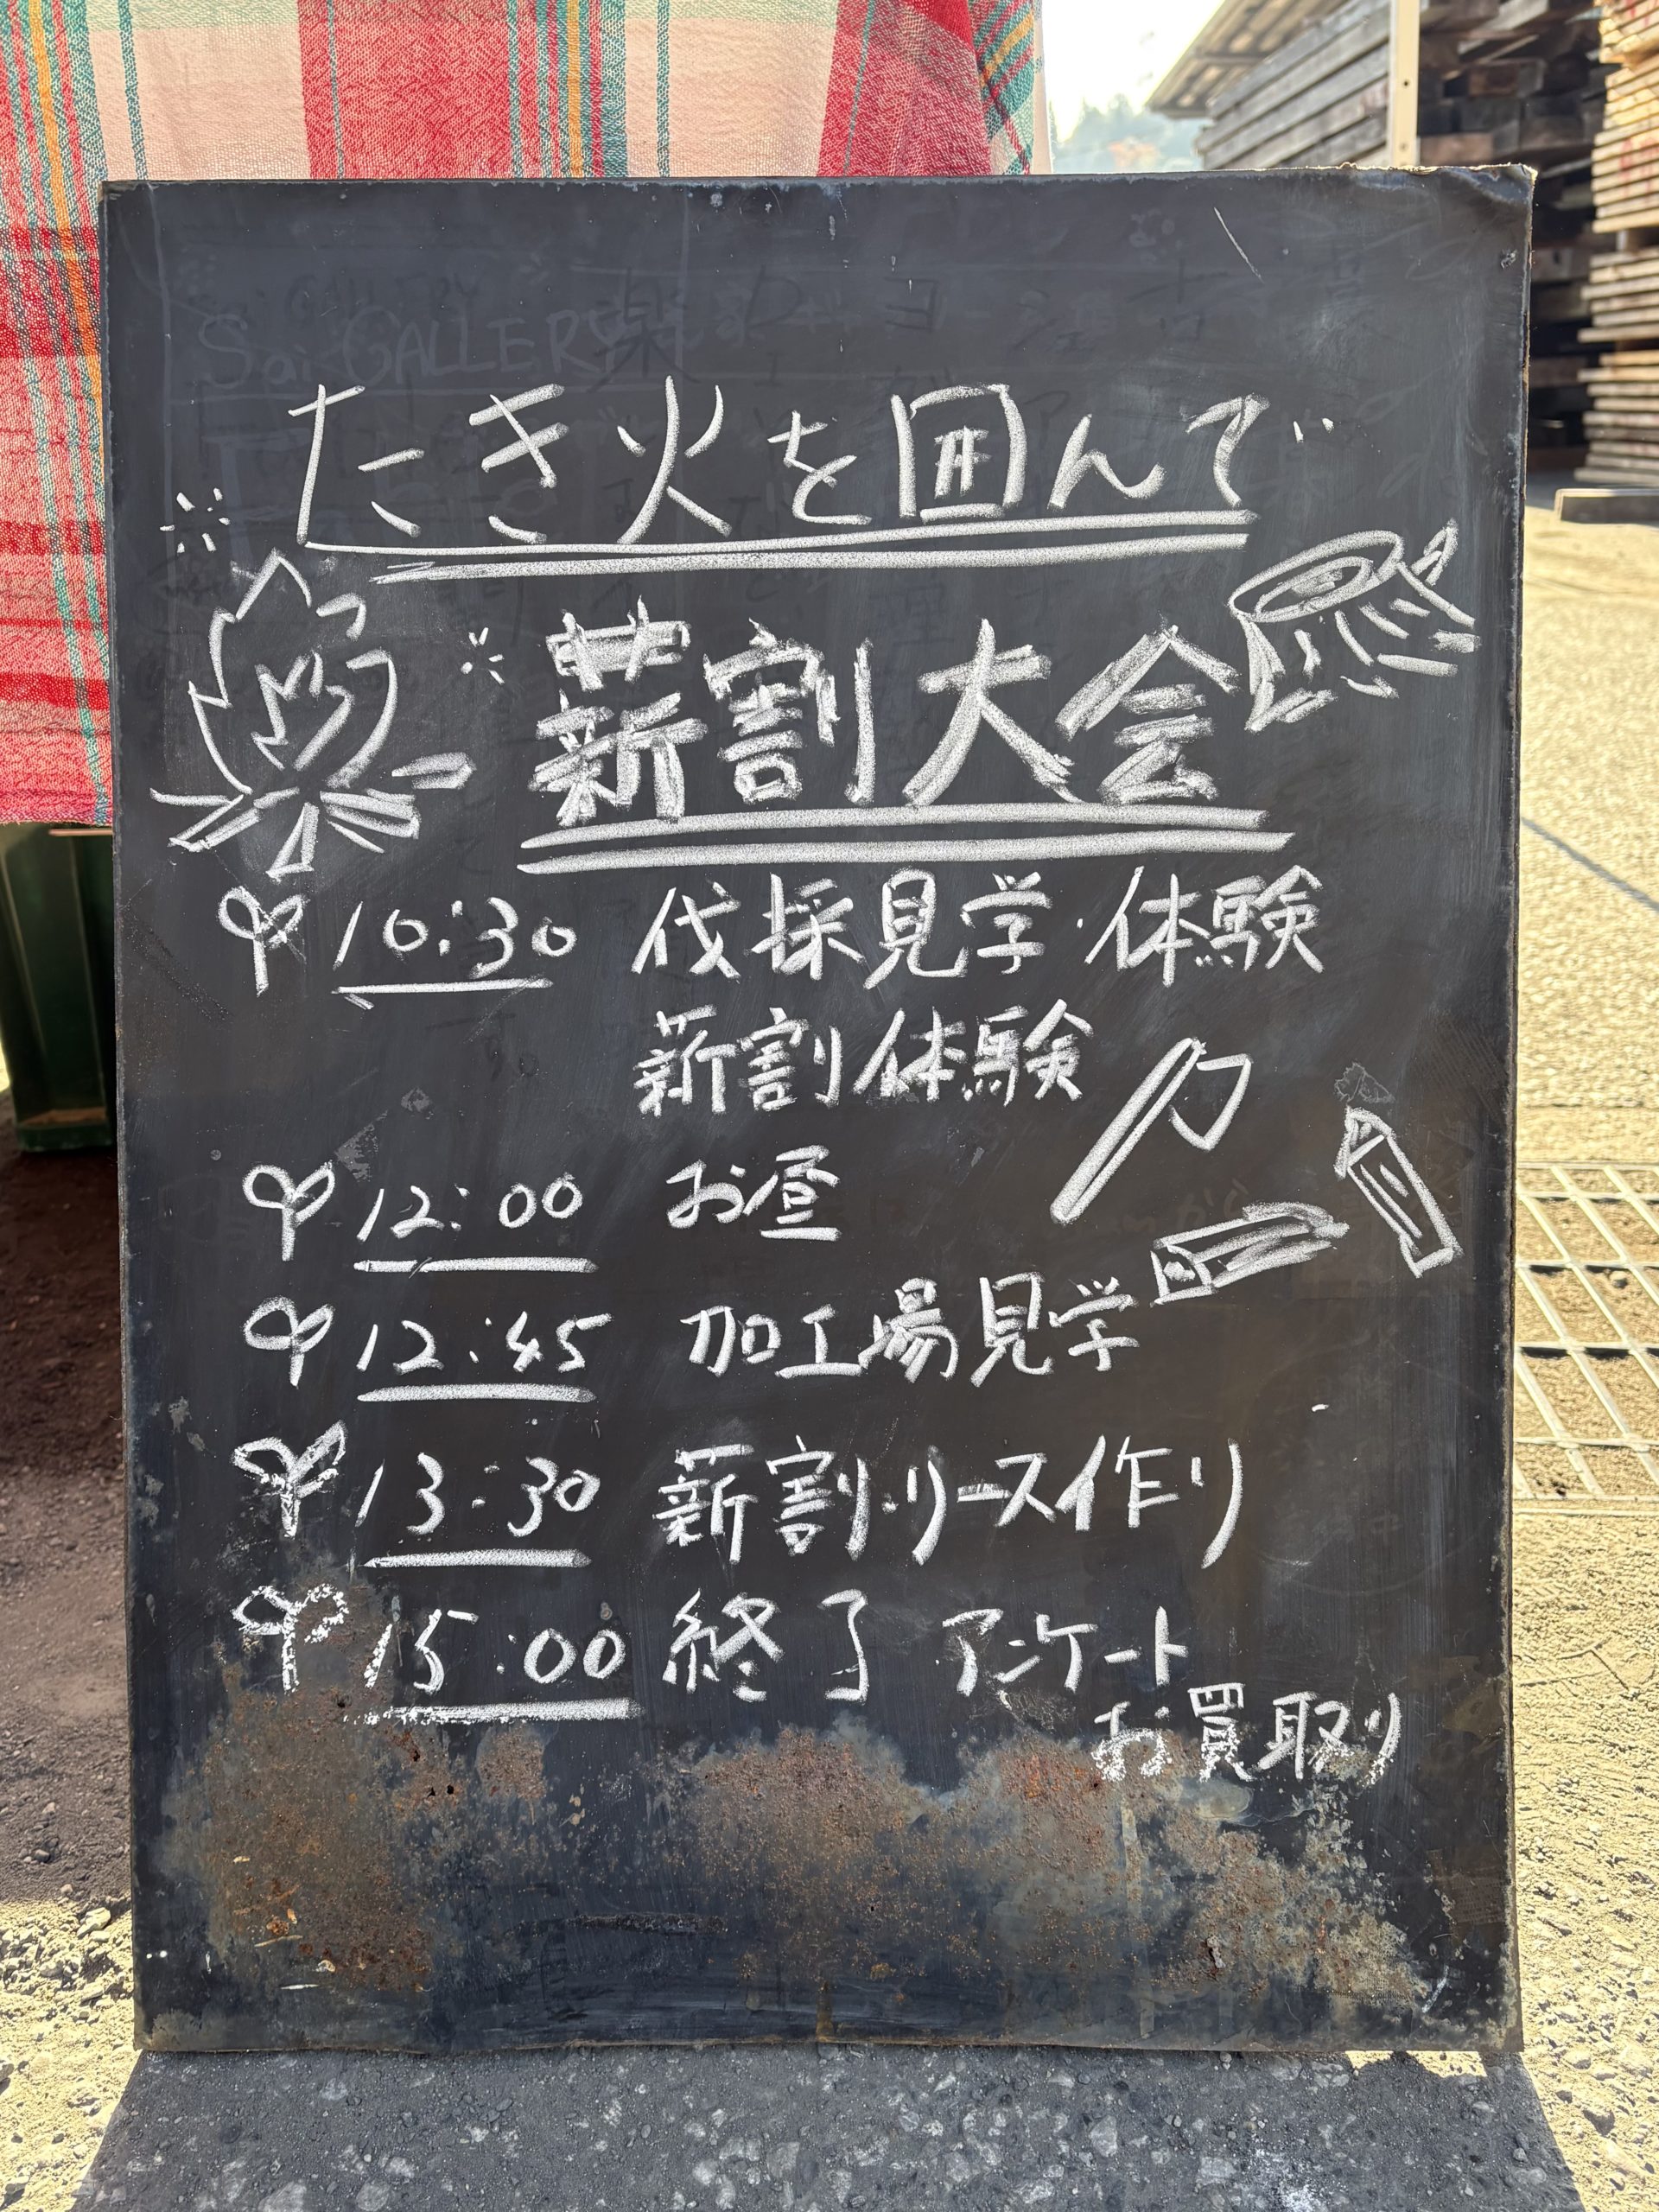 Sai GALLERY
たき火を囲んで
薪割大会
10:30 伐採見学・体験
薪割体験
12:00 お昼
12:45 加工場見学
13:30 薪割・リース作り
15:00 終了 アンケート
お買取り